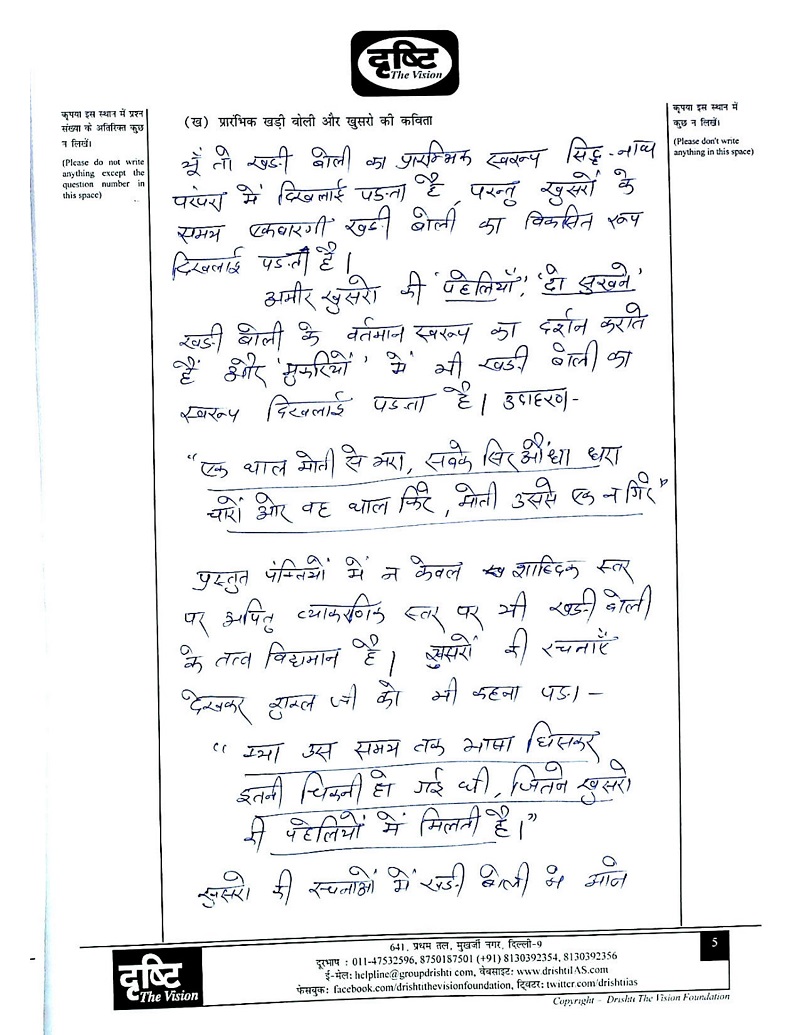 दृष्टि
The Vision
कृपया इस स्थान में प्रश्न
संख्या के अतिरिक्त कुछ
न लिखें।
(Please do not write
anything except the
question number in
this space)
कृपया इस स्थान में
कुछ न लिखें।
(Please don't write
anything in this space)
(ख) प्रारंभिक खड़ी बोली और खुसरो की कविता
यूँ तो खड़ी बोली का प्रारम्भिक स्वरूप सिद्ध-नाथ
परंपरा में दिखलाई पड़ता है, परन्तु खुसरों के
समय एकबारगी खड़ी बोली का विकसित रूप
दिखलाई पड़ती है।
अमीर खुसरो की 'पहेलियाँ', 'दो सुखने'
खड़ी बोली के वर्तमान स्वरूप का दर्शन कराते
हैं और 'मुकरियों' में भी खड़ी बोली का
स्वरूप दिखलाई पड़ता है। उदाहरण-
"एक थाल मोती से भरा, सबके सिर औंधा धरा
चारों ओर वह थाल फिरे, मोती उससे एक न गिरे"
प्रस्तुत पंक्तियों में न केवल शाब्दिक स्तर
पर अपितु व्याकरणिक स्तर पर भी खड़ी बोली
के तत्व विद्यमान है। खुसरों की रचनाएँ
देखकर शुक्ल जी को भी कहना पड़ा-
"क्या उस समय तक भाषा घिसकर
इतनी चिकनी हो गई थी, जितने खुसरो
की पहेलियों में मिलती है।"
खुसरो की रचनाओं में खड़ी बोली के माने
641, प्रथम तल, मुखर्जी नगर, दिल्ली-9
दूरभाष : 011-47532596, 8750187501 (+91) 8130392354, 8130392356
ई-मेल: helpline@groupdrishti.com, वेबसाइट: www.drishtiIAS.com
फेसबुक: facebook.com/drishtithevisionfoundation, ट्विटर: twitter.com/drishtiias
5
दृष्टि
The Vision
Copyright – Drishti The Vision Foundation